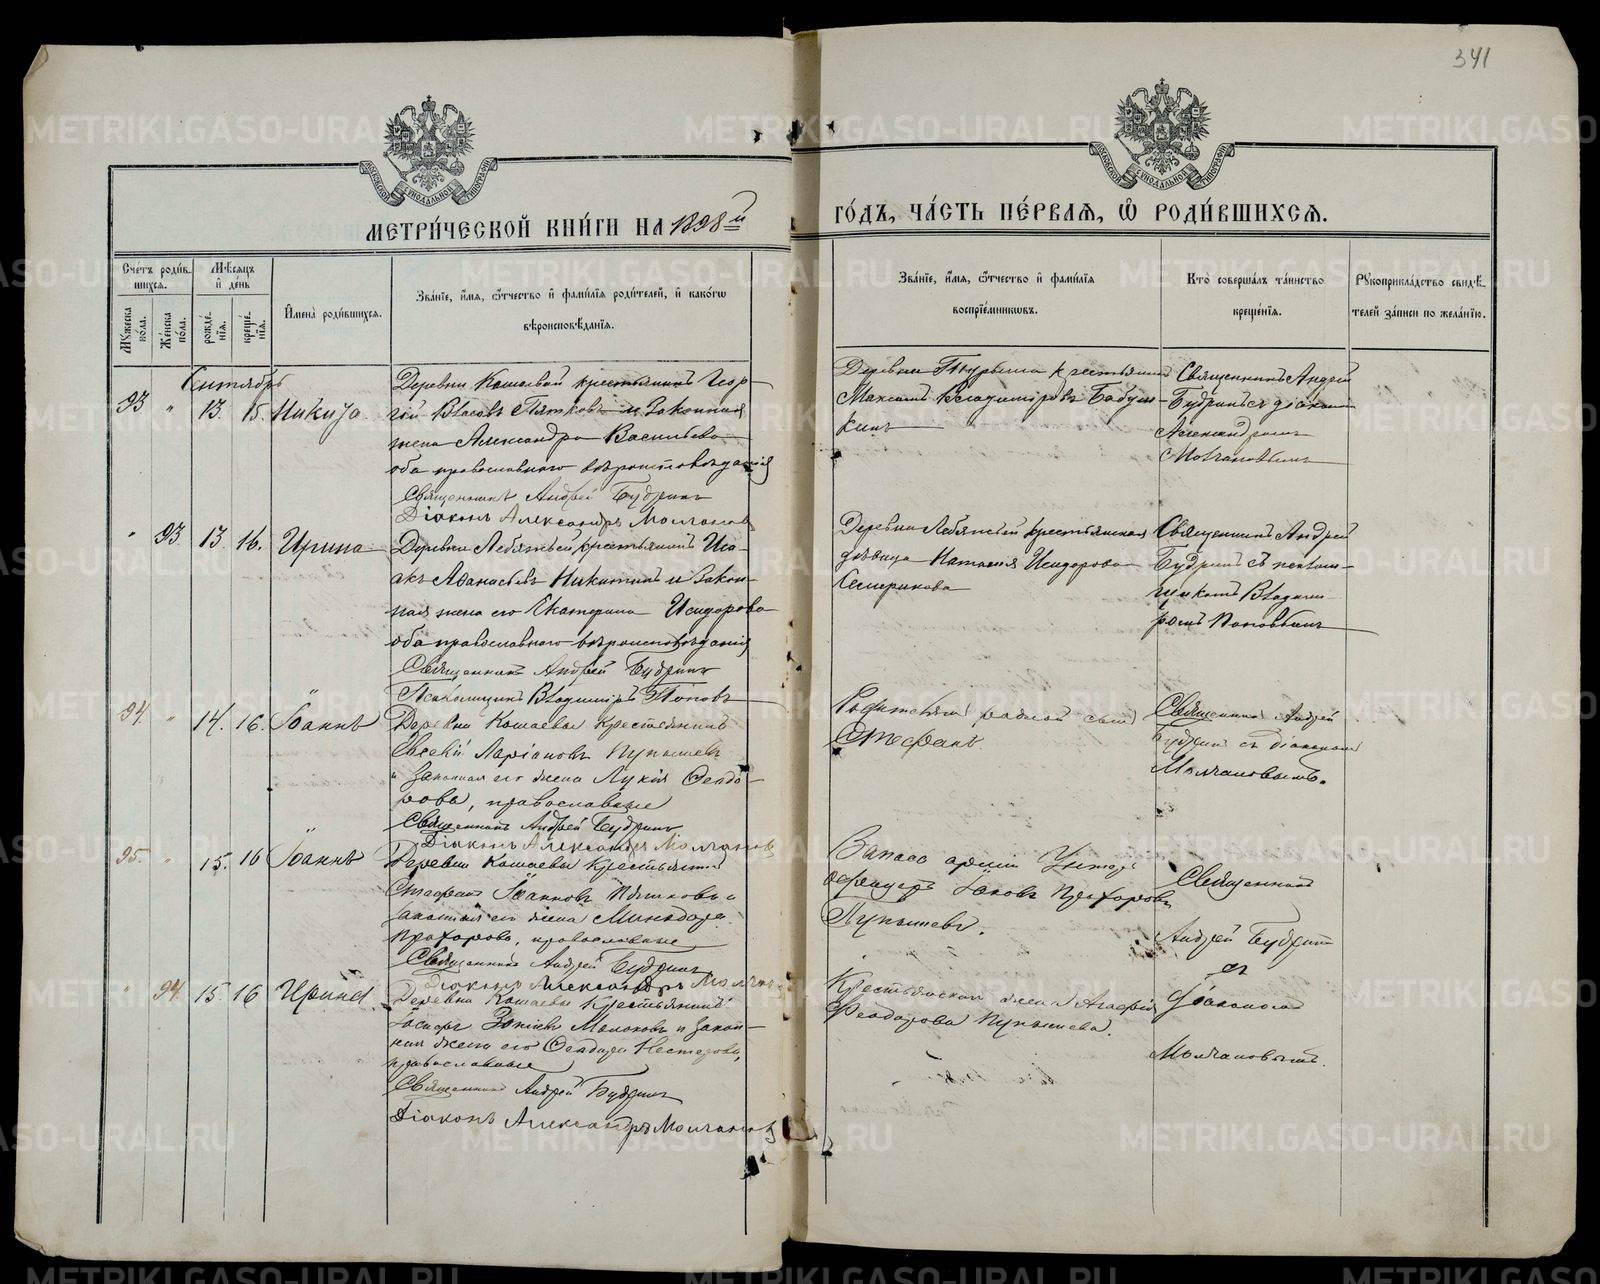 341
МЕТРИ́ЧЕСКОЙ КНИ́ГИ НА 1898й
ГО́ДЪ, ЧА́СТЬ ПЕ́РВАЯ, Ѡ҆ РОДИ́ВШИХСЯ.
Сче́тъ роди́в-
шихся.
Му́жеска по́ла.
Же́нска по́ла.
Мѣ́сяцъ и҆ де́нь
рожде́нїя.
креще́нїя.
И҆мена̀ роди́вшихся.
Зва́нїе, и҆́мя, ѻ҆́тчество и҆ фами́лїя роди́телей, и҆ како́гѡ
вѣроисповѣ́данїя.
Зва́нїе, и҆́мя, ѻ҆́тчество и҆ фами́лїя
воспрїе́мникѡвъ.
Кто̀ соверша́лъ та́инство
креще́нїя.
Рꙋкоприкла́дство свидѣ́-
телей за́писи по жела́нїю.
Сентябрь
93 " 13. 15. Никита.
Деревни Кошаевой крестьянинъ Геор-
гій Власовъ Пятковъ и законная
жена Александра Васильева
оба православнаго вѣроисповѣданія
Священникъ Андрей Будринъ
Діаконъ Александръ Молчановъ
Деревни крестьянинъ
Максимъ Владиміровъ Бабуш-
кинъ
Священникъ Андрей
Будринъ съ діакономъ
Александромъ
Молчановымъ
" 93 13. 16. Ирина
Деревни Лебяжьей крестьянинъ Иса-
акъ Аѳанасьевъ Никитинъ и закон-
ная жена его Екатерина Исидорова
оба православнаго вѣроисповѣданія
Священникъ Андрей Будринъ
Псаломщикъ Владиміръ Поповъ
Деревни Лебяжьей крестьянская
дѣвица Наталія Исидорова
Священникъ Андрей
Будринъ съ псалом-
щикомъ Владимі-
ромъ Поповымъ
94. " 14. 16. Іоаннъ
Деревни Кошаевы крестьянинъ
Евсевій Ларіоновъ Пупышевъ
и законная его жена Лукія Ѳеодо-
рова, православные
Священникъ Андрей Будринъ
Діаконъ Александръ Молчановъ
родной сынъ
Стефанъ.
Священникъ Андрей
Будринъ съ діакономъ
Молчановымъ.
95. " 15. 16 Іоаннъ
Деревни Кошаевы крестьянинъ
Стефанъ Іоанновъ Пятковъ и
законная его жена Минодора
Прохорова, православные
Священникъ Андрей Будринъ
Діаконъ Александръ Молчановъ
Запаса арміи Унтеръ
офицеръ Іаковъ Прохоровъ
Пупышевъ.
Священникъ
Андрей Будринъ
съ
Діакономъ
Молчановымъ.
" 94. 15. 16 Ирина.
Деревни Кошаевы крестьянинъ
Молоковъ и закон-
ная жена его Нестерова,
православные
Священникъ Андрей Будринъ
Діаконъ Александръ Молчановъ
Крестьянская жена Агафія
Феодорова Пупышева.